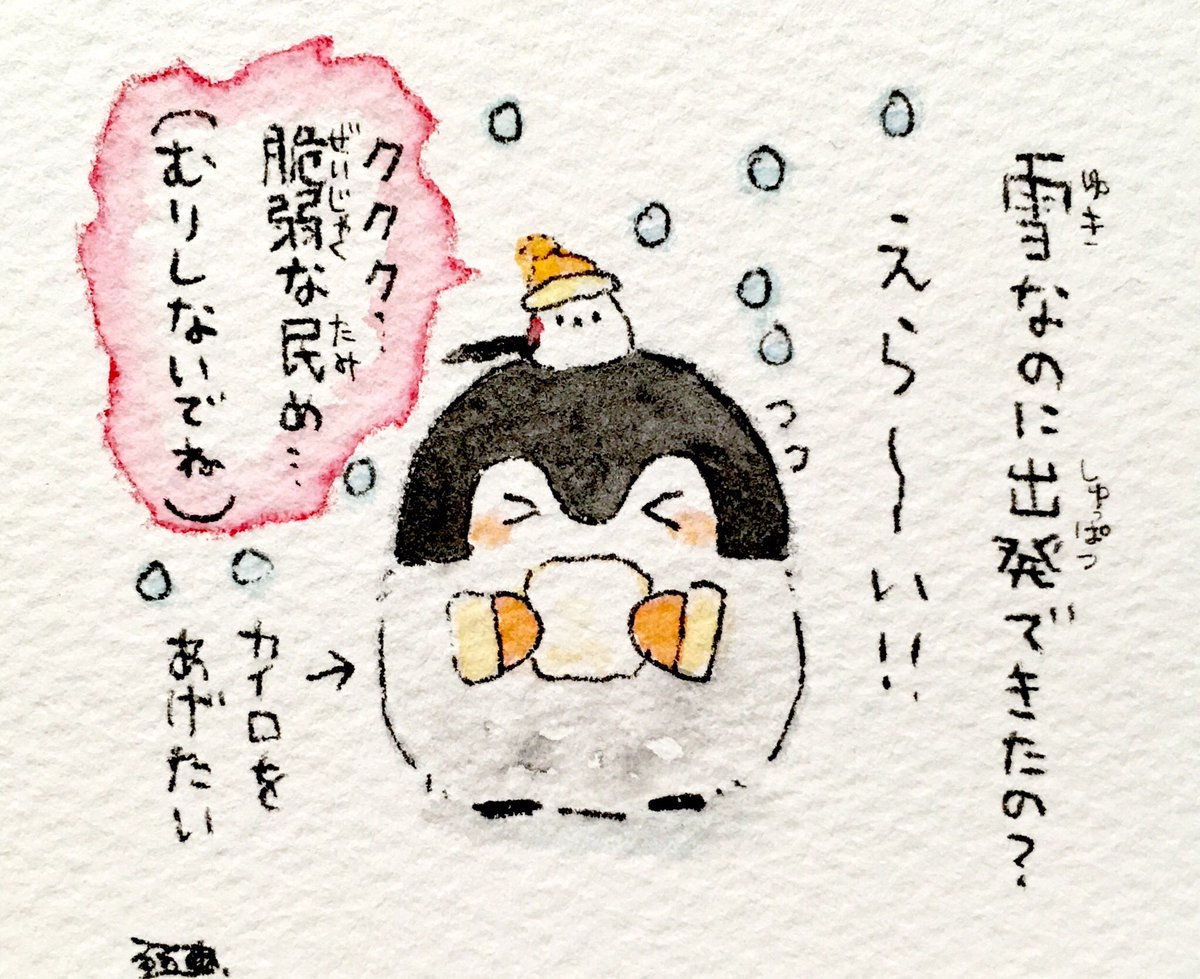 雪なのに出発できたの?
ゆき
しゅっぱつ
えら〜い!!
ククク…
脆弱な民め…
ぜいじゃく
たみ
(むりしないでね)
カイロを
あげたい